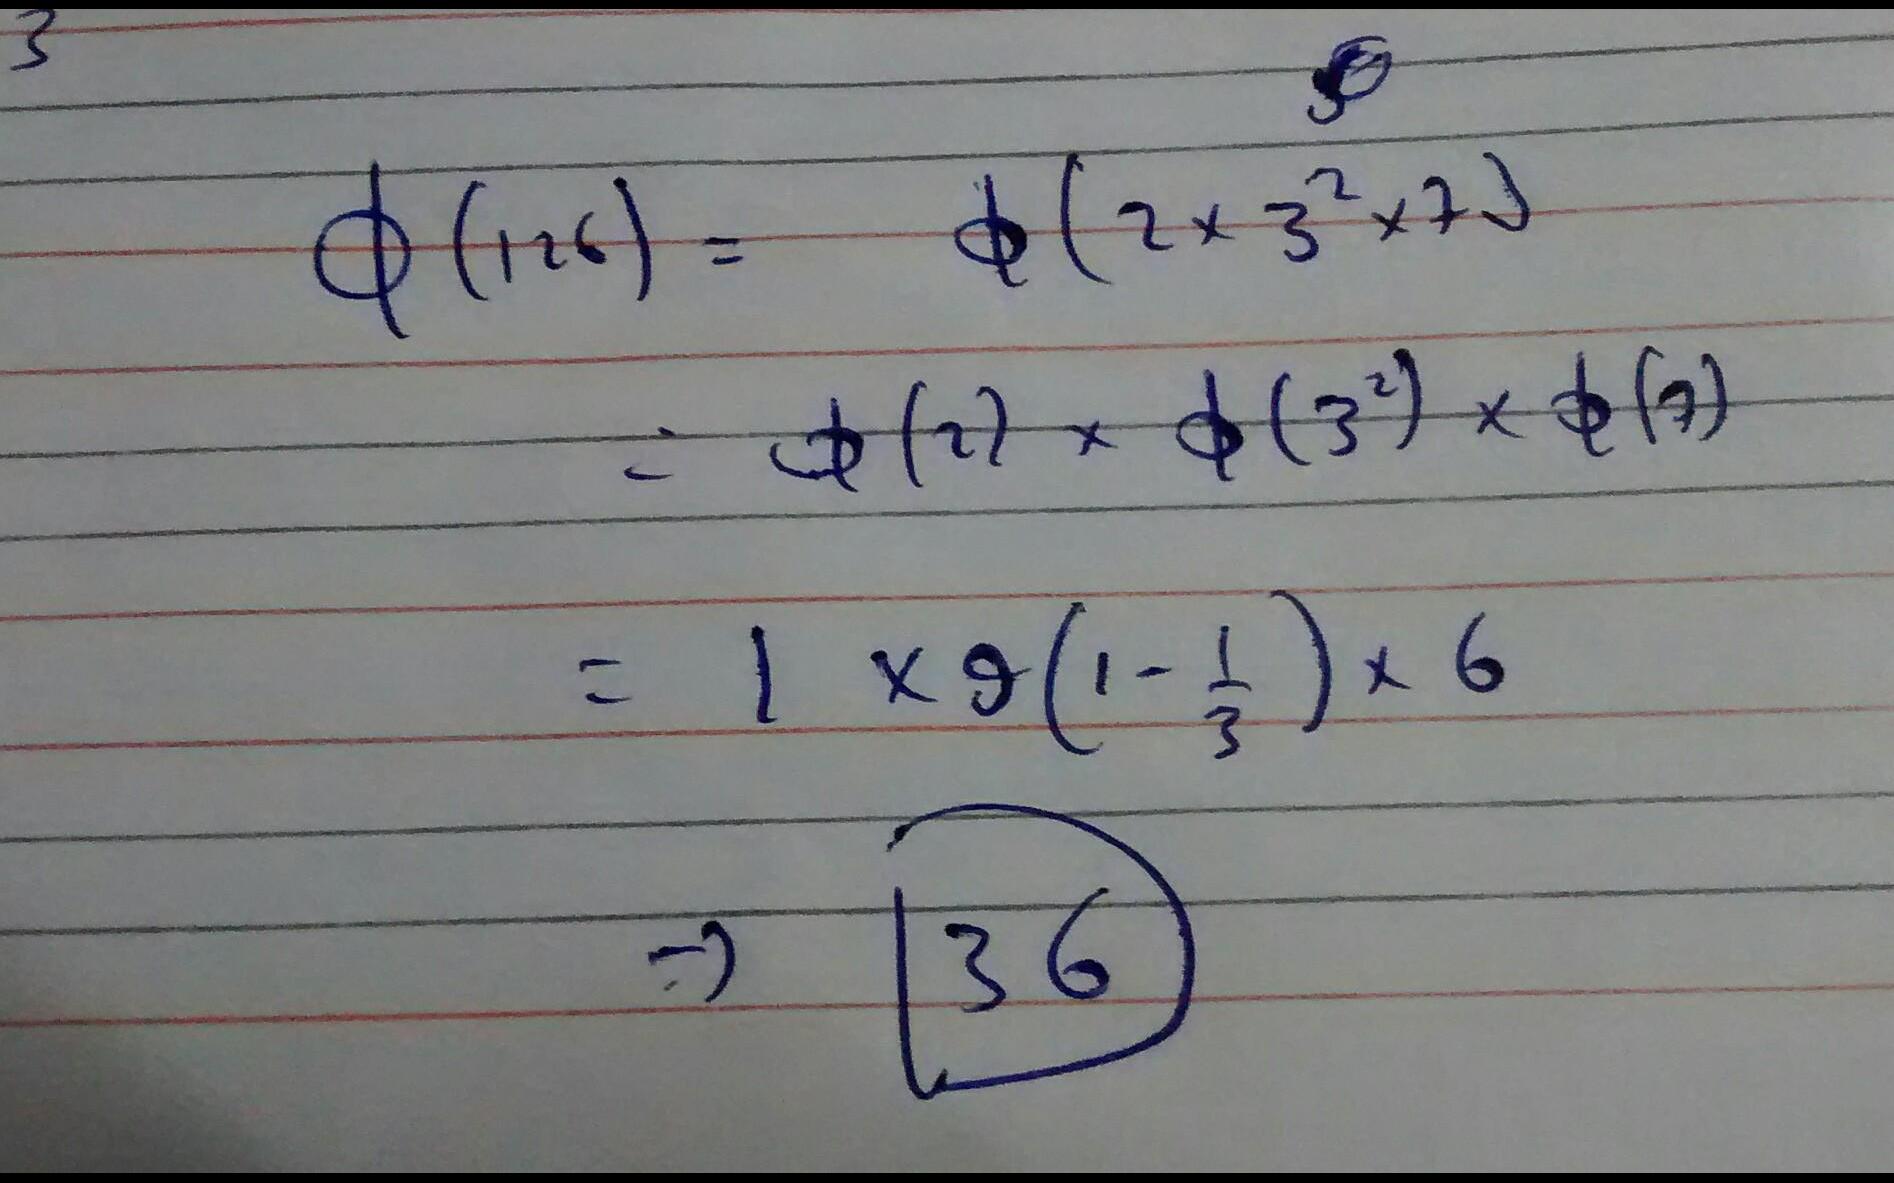 3
ϕ(126) = ϕ(2 × 3² × 7)
= ϕ(2) × ϕ(3²) × ϕ(7)
= 1 × 9(1 - 1/3) × 6
⇒ 36